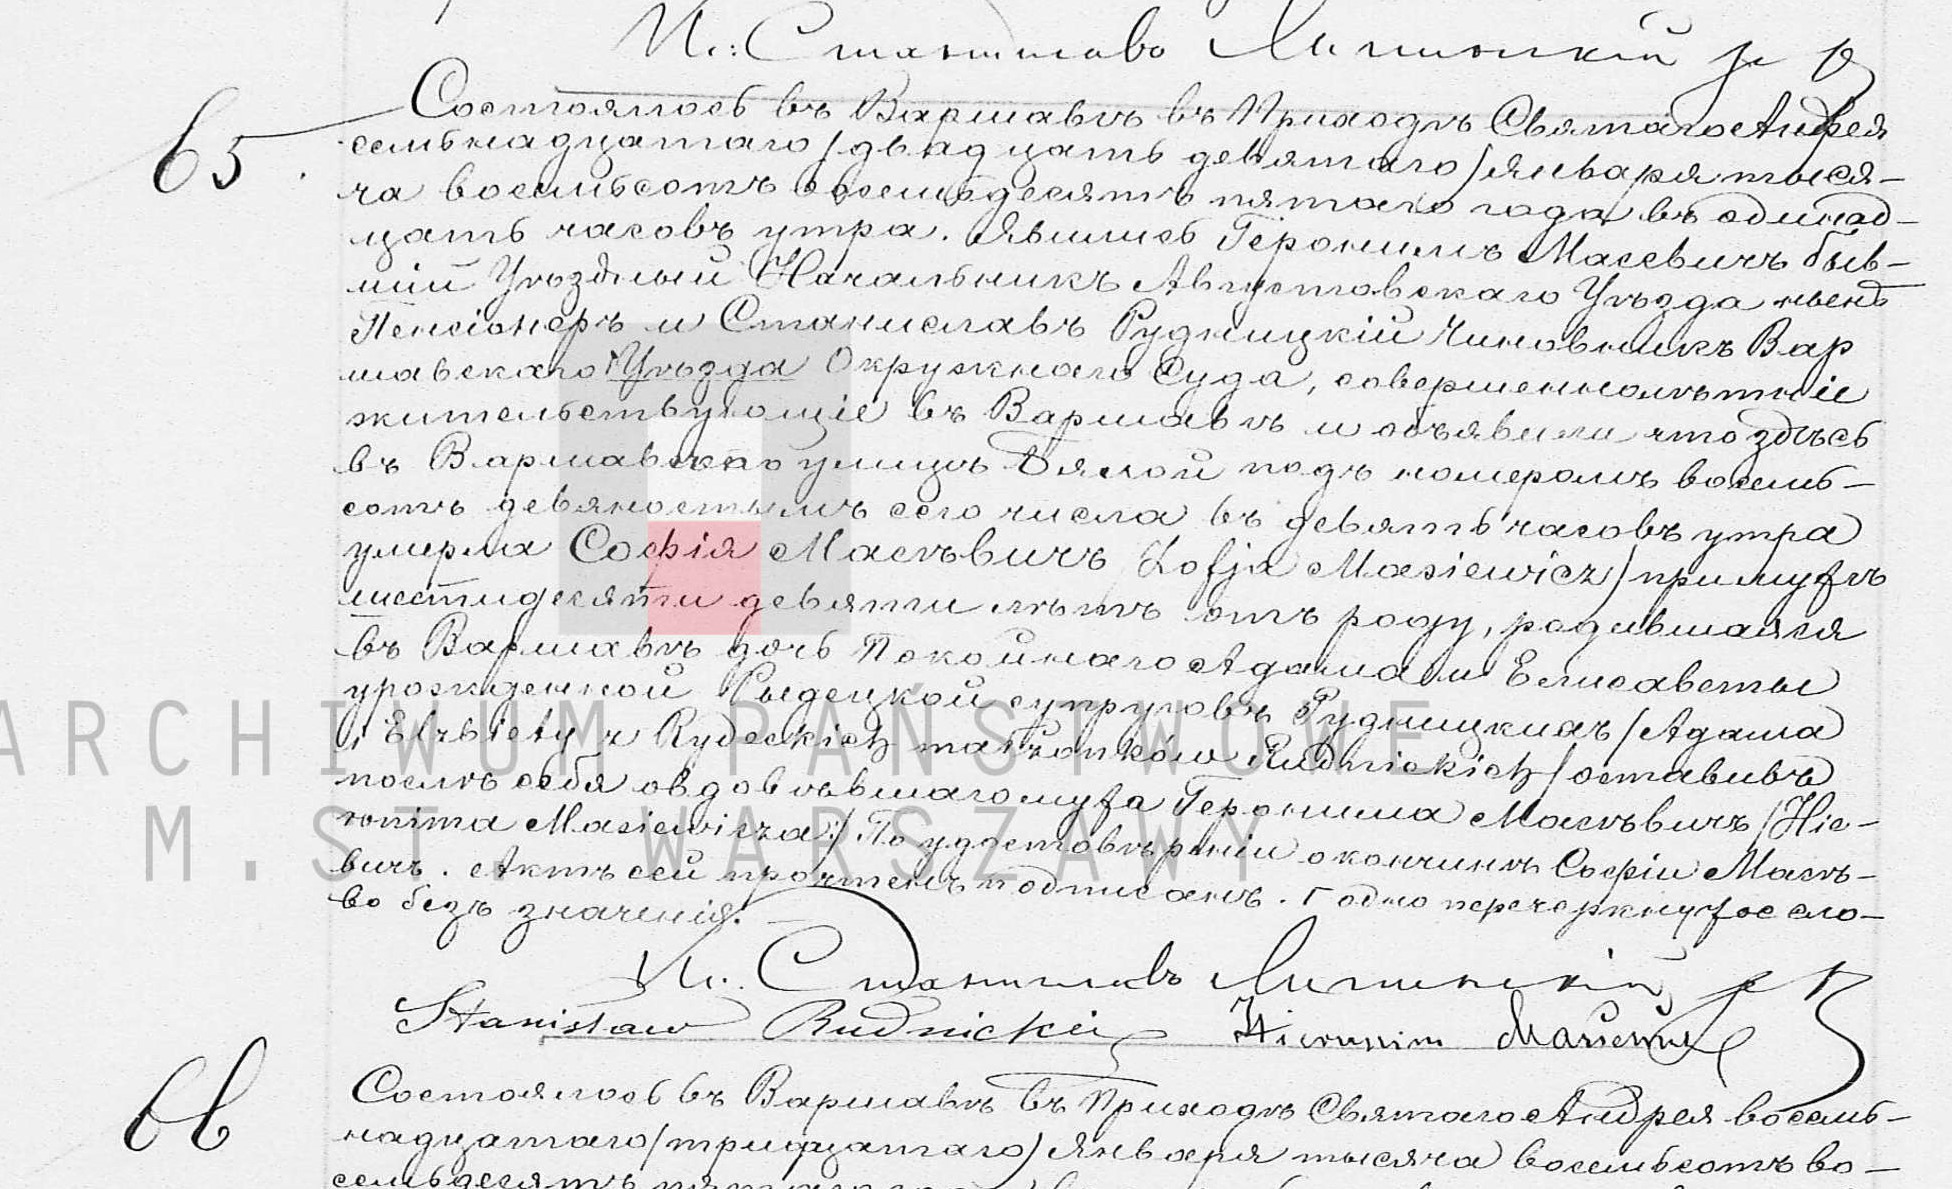 И.: Станиславъ Липинскій
65 Состоялось въ Варшавѣ въ Приходѣ Святаго Андрея
семьнадцатаго /двадцать девятаго/ января тыся-
ча восемьсотъ восемьдесятъ пятаго года въ одинад-
цать часовъ утра. Явились Геронимъ Масевичъ быв-
шій Уѣздный Начальникъ Августовскаго Уѣзда нынѣ
Пенсіонеръ и Станиславъ Рудницкій Чиновникъ Вар
шавскаго Уѣзда Окружнаго Суда, совершеннолѣтніе
жительствующіе въ Варшавѣ и объявили что здѣсь
въ Варшавѣ по улицѣ Бялой подъ номеромъ восемь-
сотъ девяностымъ сего числа въ девять часовъ утра
умерла Софія Масѣвичъ Zofja Masiewicz/ при мужѣ
шестидесяти девяти лѣтъ отъ роду, родившаяся
въ Варшавѣ дочь Покойнаго Адама и Елисаветы
урожденной Рыдецкой супруговъ Рудницкихъ /Adama
i Elżbiety z Rydeckich małżonków Rudnickich/ оставивъ
послѣ себя овдовѣвшаго мужа Геронима Масѣвичъ /Hie-
ronima Masiewicza/ По удостовѣреніи о кончинѣ Софіи Масѣ-
вичъ. Актъ сей прочтенъ подписанъ. Г одно перечеркнутое сло-
во безъ значенія.
И.: Станиславъ Липинскій
Stanisław Rudnicki Hieronim Masiewicz
66 Состоялось въ Варшавѣ въ Приходѣ Святаго Андрея восемь-
надцатаго /тридцатаго/ Января тысяча восемьсотъ во-
семьдесятъ
ARCHIWUM PAŃSTWOWE
M.ST. WARSZAWY